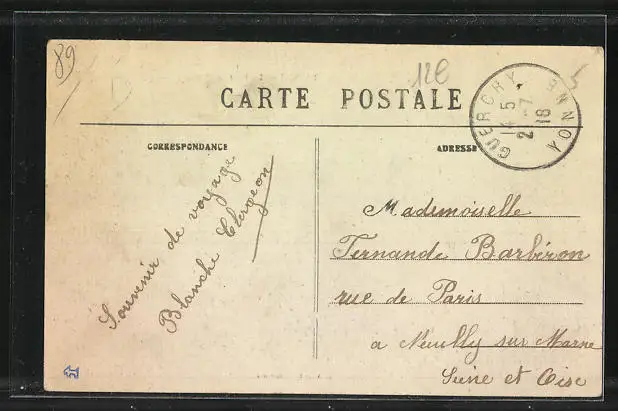 89
12e
CARTE POSTALE
GUERCHY
14 5
2 -7
18
YONNE
CORRESPONDANCE
ADRESSE
Souvenir de voyage
Blanche Clageon
Mademoiselle
Fernande Barbéron
rue de Paris
a Neuilly sur Marne
Seine et Oise